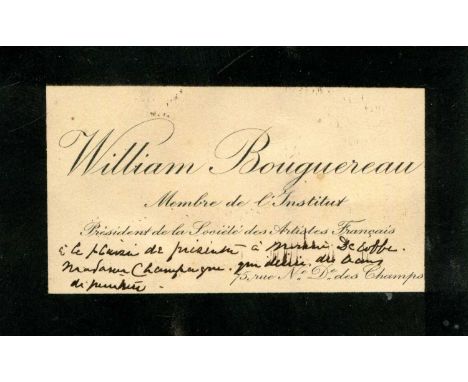 William Bouguereau
Membre de l'Institut
Président de la Société des Artistes Français
à le plaisir de présenter à
Madame Champaigne. qui désire des
de peinture.
75, rue Ne. De. des Champs